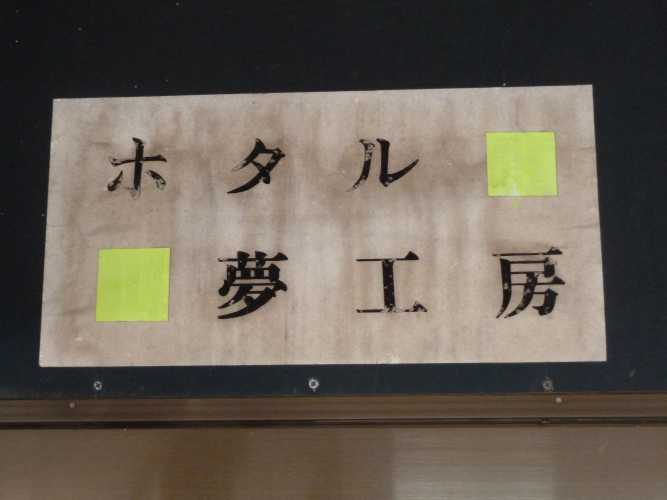 ホタル
夢工房